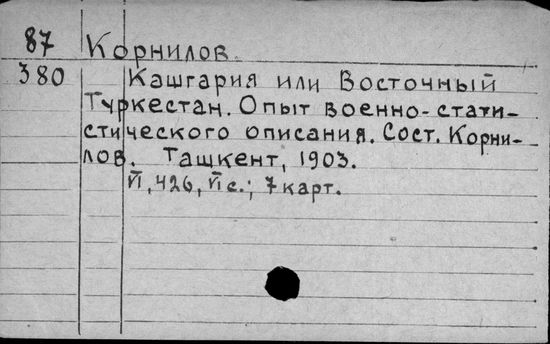 87 Корнилов.
380 Кашгария или Восточный
Туркестан. Опыт военно-стати-
стического описания. Сост. Корни-
лов. Ташкент, 1903.
VI, 426, VI с.; 7 карт.